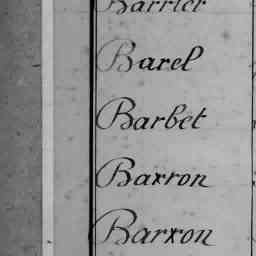 Barrier
Barel
Barbet
Barron
Barron